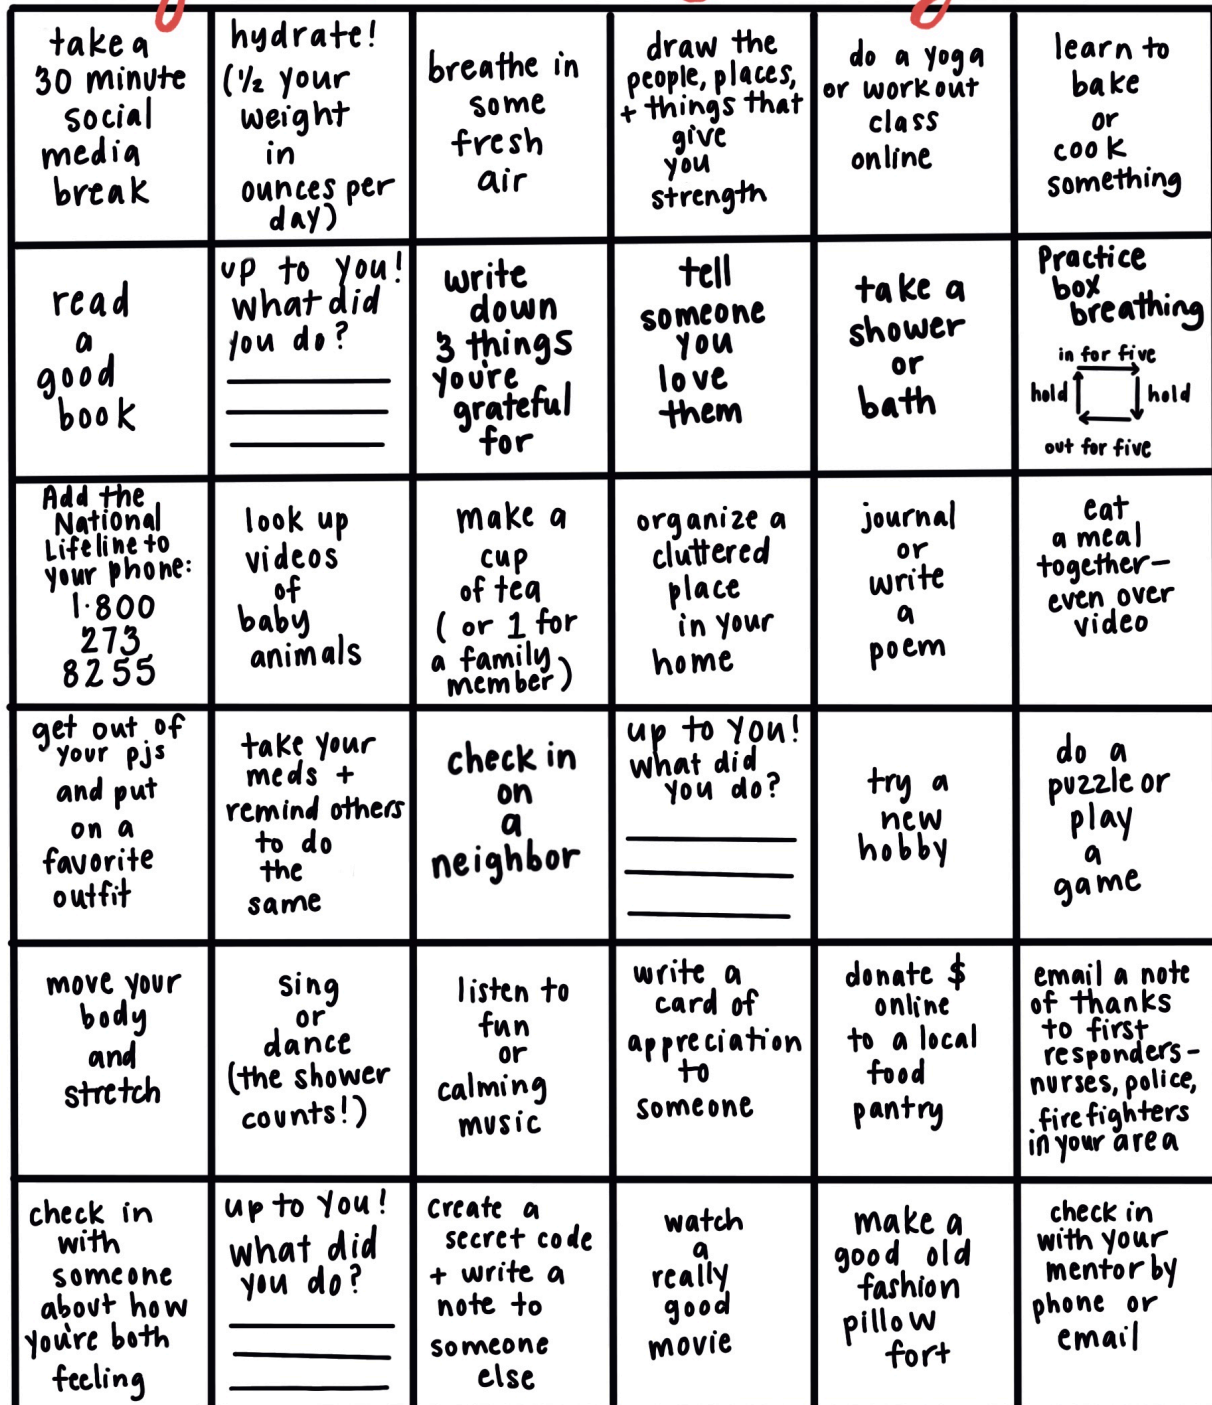 take a
30 minute
social
media
break
hydrate!
(1/2 your
weight
in
ounces per
day)
breathe in
some
fresh
air
draw the
people, places,
+ things that
give
you
strength
do a yoga
or workout
class
online
learn to
bake
or
cook
something
read
a
good
book
up to you!
what did
you do?
write
down
3 things
you're
grateful
for
tell
someone
you
love
them
take a
shower
or
bath
Practice
box
breathing
in for five
hold hold
out for five
Add the
National
Lifeline to
your phone:
1·800
273
8255
look up
videos
of
baby
animals
make a
cup
of tea
( or 1 for
a family
member)
organize a
cluttered
place
in your
home
journal
or
write
a
poem
eat
a meal
together-
even over
video
get out of
your pjs
and put
on a
favorite
outfit
take your
meds +
remind others
to do
the
same
check in
on
a
neighbor
up to you!
what did
you do?
try a
new
hobby
do a
puzzle or
play
a
game
move your
body
and
stretch
sing
or
dance
(the shower
counts!)
listen to
fun
or
calming
music
write a
card of
appreciation
to
someone
donate $
online
to a local
food
pantry
email a note
of thanks
to first
responders-
nurses, police,
firefighters
in your area
check in
with
someone
about how
you're both
feeling
up to you!
what did
you do?
create a
secret code
+ write a
note to
someone
else
watch
a
really
good
movie
make a
good old
fashion
pillow
fort
check in
with your
mentor by
phone or
email